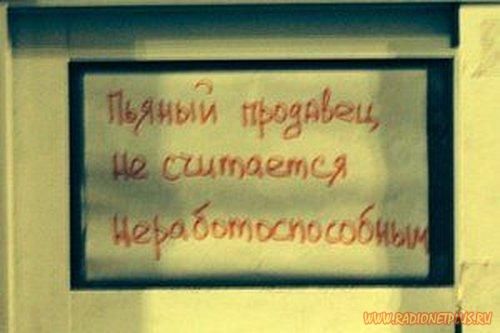 Пьяный продавец
не считается
неработоспособным
WWW.RADIONETPLUS.RU